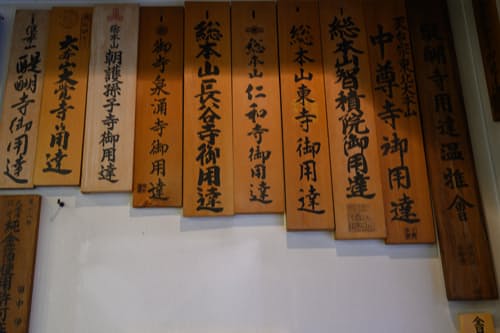 醍醐寺用達温雅会
天台宗東北大本山
中尊寺御用達
総本山智積院御用達
総本山東寺御用達
総本山仁和寺御用達
総本山長谷寺御用達
御寺泉涌寺御用達
総本山
朝護孫子寺御用達
大本山大覚寺御用達
総本山
醍醐寺御用達